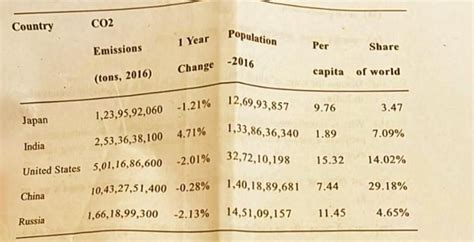 Country CO2 Emissions (tons, 2016) 1 Year Change Population -2016 Per capita Share of world
Japan 1,23,95,92,060 -1.21% 12,69,93,857 9.76 3.47
India 2,53,36,38,100 4.71% 1,33,86,36,340 1.89 7.09%
United States 5,01,16,86,600 -2.01% 32,72,10,198 15.32 14.02%
China 10,43,27,51,400 -0.28% 1,40,18,89,681 7.44 29.18%
Russia 1,66,18,99,300 -2.13% 14,51,09,157 11.45 4.65%